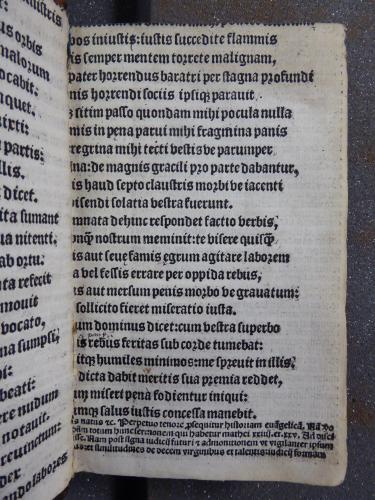 nistris
us orbis
malorum
vocabit:
nquet.
uixti:
partis:
llis.
dicet.
ita sumant
ua nitenti:
ab ortu:
ta refecit
mouit
vocato,
na sumpsi,
beati:
ere nudum
notast.
dolabores
vos iniustis: iustis succedite flammis
is semper mentem torrete malignam,
pater horrendus baratri per stagna profundi
nis horrendi sociis ipsiqꝫ parauit
sitim passo quondam mihi pocula nulla
mis in pena parui mihi fragmina panis
regrina mihi tecti vestis ve parumper
na: de magnis gracili pro parte dabantur,
is haud septo claustris morbi ve iacenti
isendi solatia vestra fuerunt.
mnata dehinc respondet factio verbis,
nqꝫ nostrum meminit: te visere quisqꝫ
is aut seue famis egrum agitare laborem
a vel fessis errare per oppida rebus,
is aut mersum penis morbo ve grauatum:
sollicito fieret miseratio iusta.
um dominus dicet: cum vestra superbo
is rebus feritas sub corde tumebat:
itqꝫ humiles minimos: me spreuit in illis.
dicta dabit meritis sua premia reddet,
um miseri pena fodientur iniqui:
imqꝫ salus iustis concessa manebit.
is natus ⁊c. Perpetuo tenore ꝓsequitur historiam euāgelicā. Nā do
dam totum hunc sermonem qui habetur mathei xxiiij. et xxv. Nā dicit
esse. Nam post signa iudicij futuri ⁊ admonitionem vt vigilanter ipsum
et similitudines de decem virginibus et talentis: iudicij formam